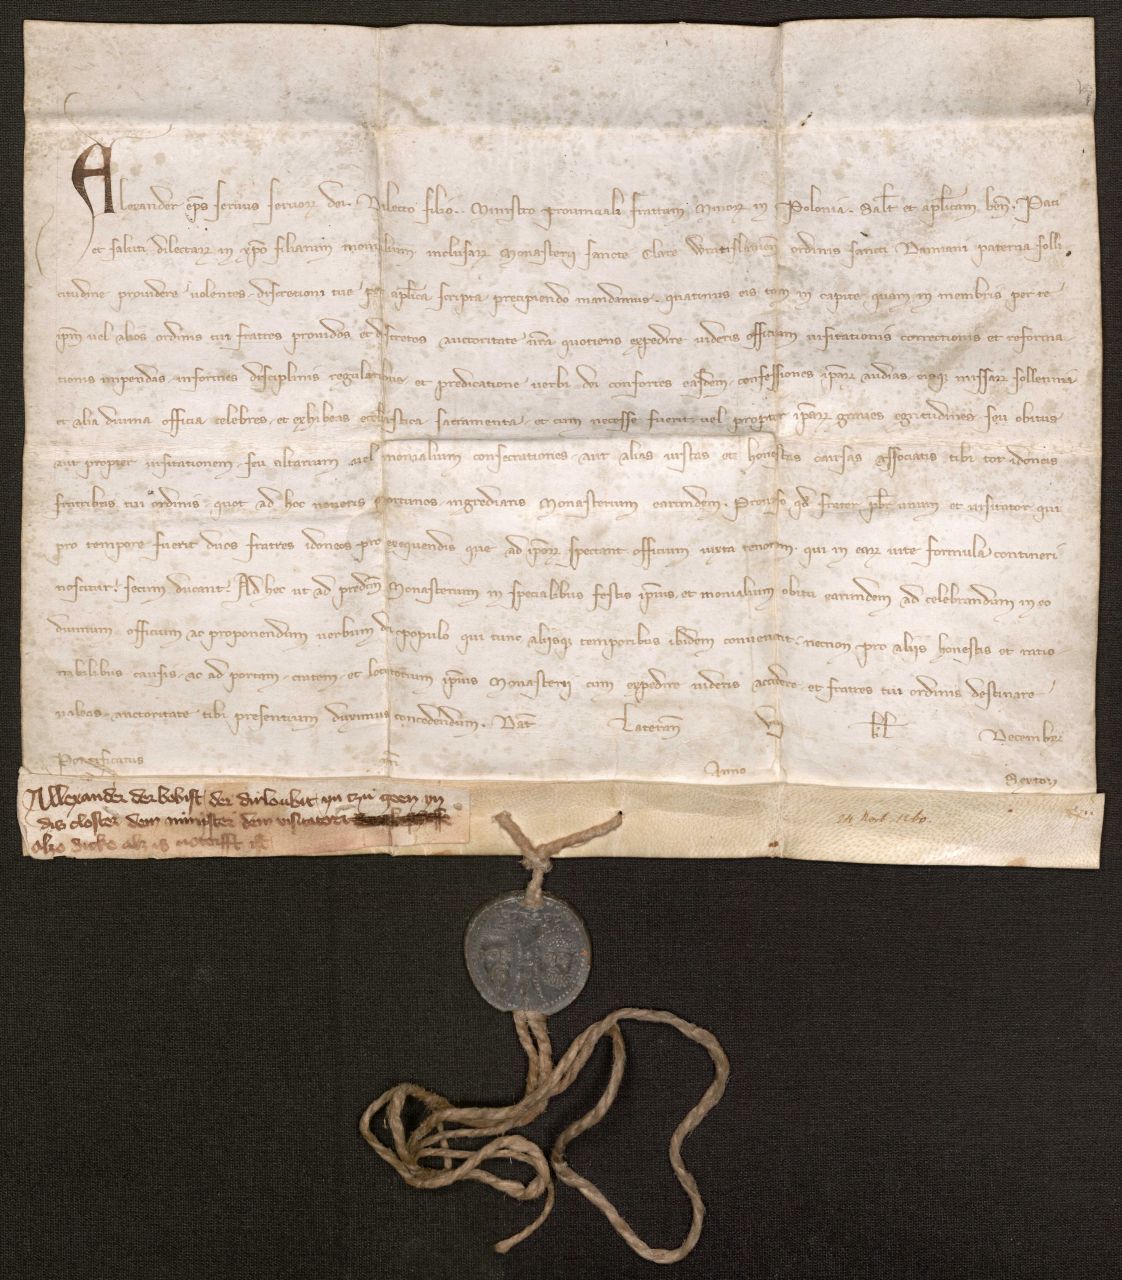 Alexander ep̅s seruus seruoꝝ dei. Dilecto filio.. Ministro prouinciali fratrum Minoꝝ in Polonia. Sal̅t et ap̅licam ben̅. Paci
et saluti dilectaꝝ in xp̅o filiarum monialium inclusaꝝ Monasterii sancte Clare Wratislauien̅ ordinis sancti Damiani paterna solli
citudine prouidere uolentes, discretioni tue per ap̅lica scripta precipiendo mandamus, quatinus eis tam in capite, quam in membris per te
ip̅m uel alios ordinis tui fratres prouidos et discretos auctoritate n̅ra quotiens expedire uideris officium uisitationis correctionis et reforma
tionis impendas, informes disciplinis regularibus, et predicatione uerbi dei confortes easdem, confessiones ip̅aꝝ audias, eisqꝫ missaꝝ sollennia
et alia diuina officia celebres, et exhibeas eccl̅iastica sacramenta, et cum necesse fuerit, uel propter ip̅aꝝ graues egritudines, seu obitus
aut propter uisitationem, seu altarium uel monialium consecrationes, aut alias iustas et honestas causas associatis tibi tot idoneis
fratribus tui ordinis, quot ad hoc noueris oportunos, ingrediaris Monasterium earundem. Prouiso qd̅ frater pb̅r unum et uisitator qui
pro tempore fuerit duos fratres idoneos pro exequendis que ad ip̅oꝝ spectant officium iuxta tenorem, qui in eaꝝ uite formula contineri
noscitur, secum ducant. Ad hec ut ad predc̅m Monasterium in specialibus festis ip̅ius, et monialium obitu earundem ad celebrandum in eo
diuinum officium ac proponendum uerbum dei populo qui tunc aliisqꝫ temporibus ibidem conuenerit, necnon pro aliis honestis et ratio
nabilibus causis, ac ad portam, cratem, et locutorium ip̅ius Monasterii cum expedire uideris accedere, et fratres tui ordinis destinare
ualeas, auctoritate tibi presentium duximus concedendum. Dat̅ Lateran̅ kl̅ Decembr̅
Pontificatus nr̅i Anno Sexto
Allexander der bobist der dirloubit yn czu geen yn
dis closter dem minister dem visitatori
also dicke als is notorfft ist
24 Nov. 1260.